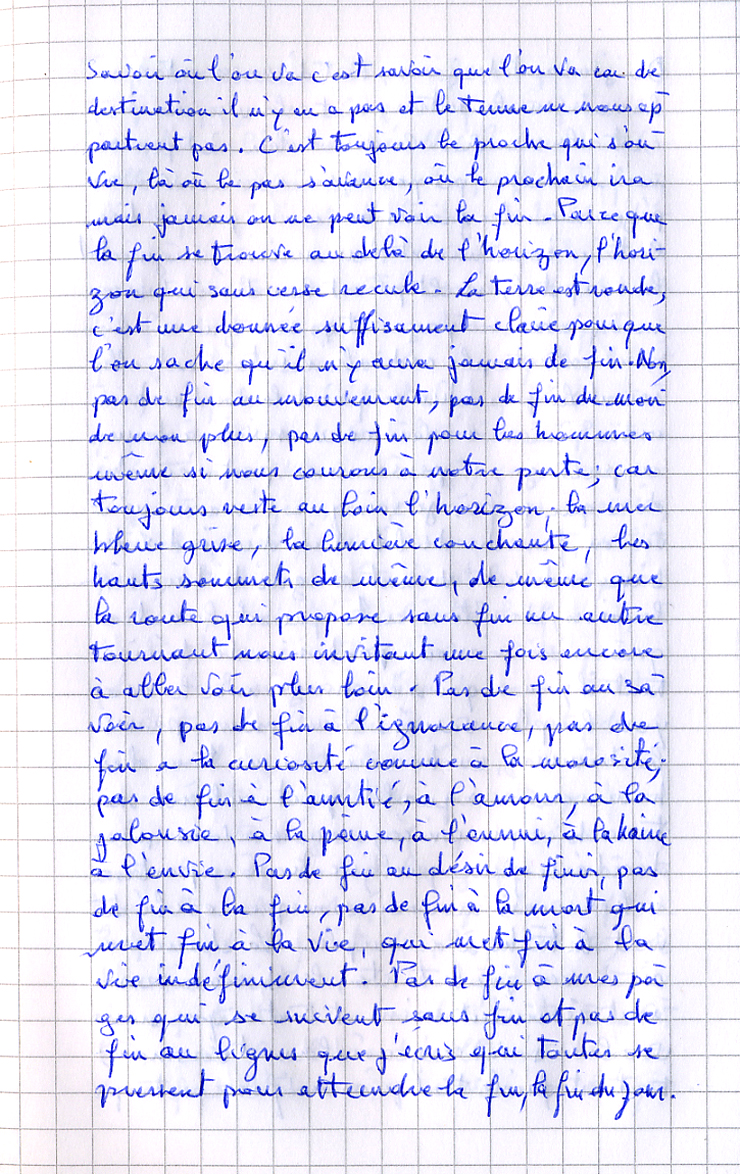 Savoir où l'on va c'est savoir que l'on va car de
destination il n'y en a pas et le terme ne nous ap
partient pas. C'est toujours le proche qui s'ou
vre, là où le pas s'avance, où le prochain ira
mais jamais on ne peut voir la fin. Parce que
la fin se trouve au delà de l'horizon, l'hori-
zon qui sans cesse recule. La terre est ronde,
c'est une donnée suffisament claire pour que
l'on sache qu'il n'y aura jamais de fin. Non,
pas de fin au mouvement, pas de fin du mon
de non plus, pas de fin pour les hommes
même si nous courons à notre perte; car
toujours reste au loin l'horizon, la mer
bleue grise, la lumière couchante, les
hauts sommets de même, de même que
la route qui propose sans fin un autre
tournant nous invitant une fois encore
à aller voir plus loin. Pas de fin au sa
voir, pas de fin à l'ignorance, pas de
fin a la curiosité comme à la morosité;
pas de fin à l'amitié, à l'amour, à la
jalousie, à la peine, à l'ennui, à la haine
à l'envie. Pas de fin au désir de finir, pas
de fin à la fin, pas de fin à la mort qui
met fin à la vie, qui met fin à la
vie indéfiniment. Pas de fin à mes pa
ges qui se suivent sans fin et pas de
fin au lignes que j'écris qui toutes se
pressent pour atteindre la fin, la fin du jour.